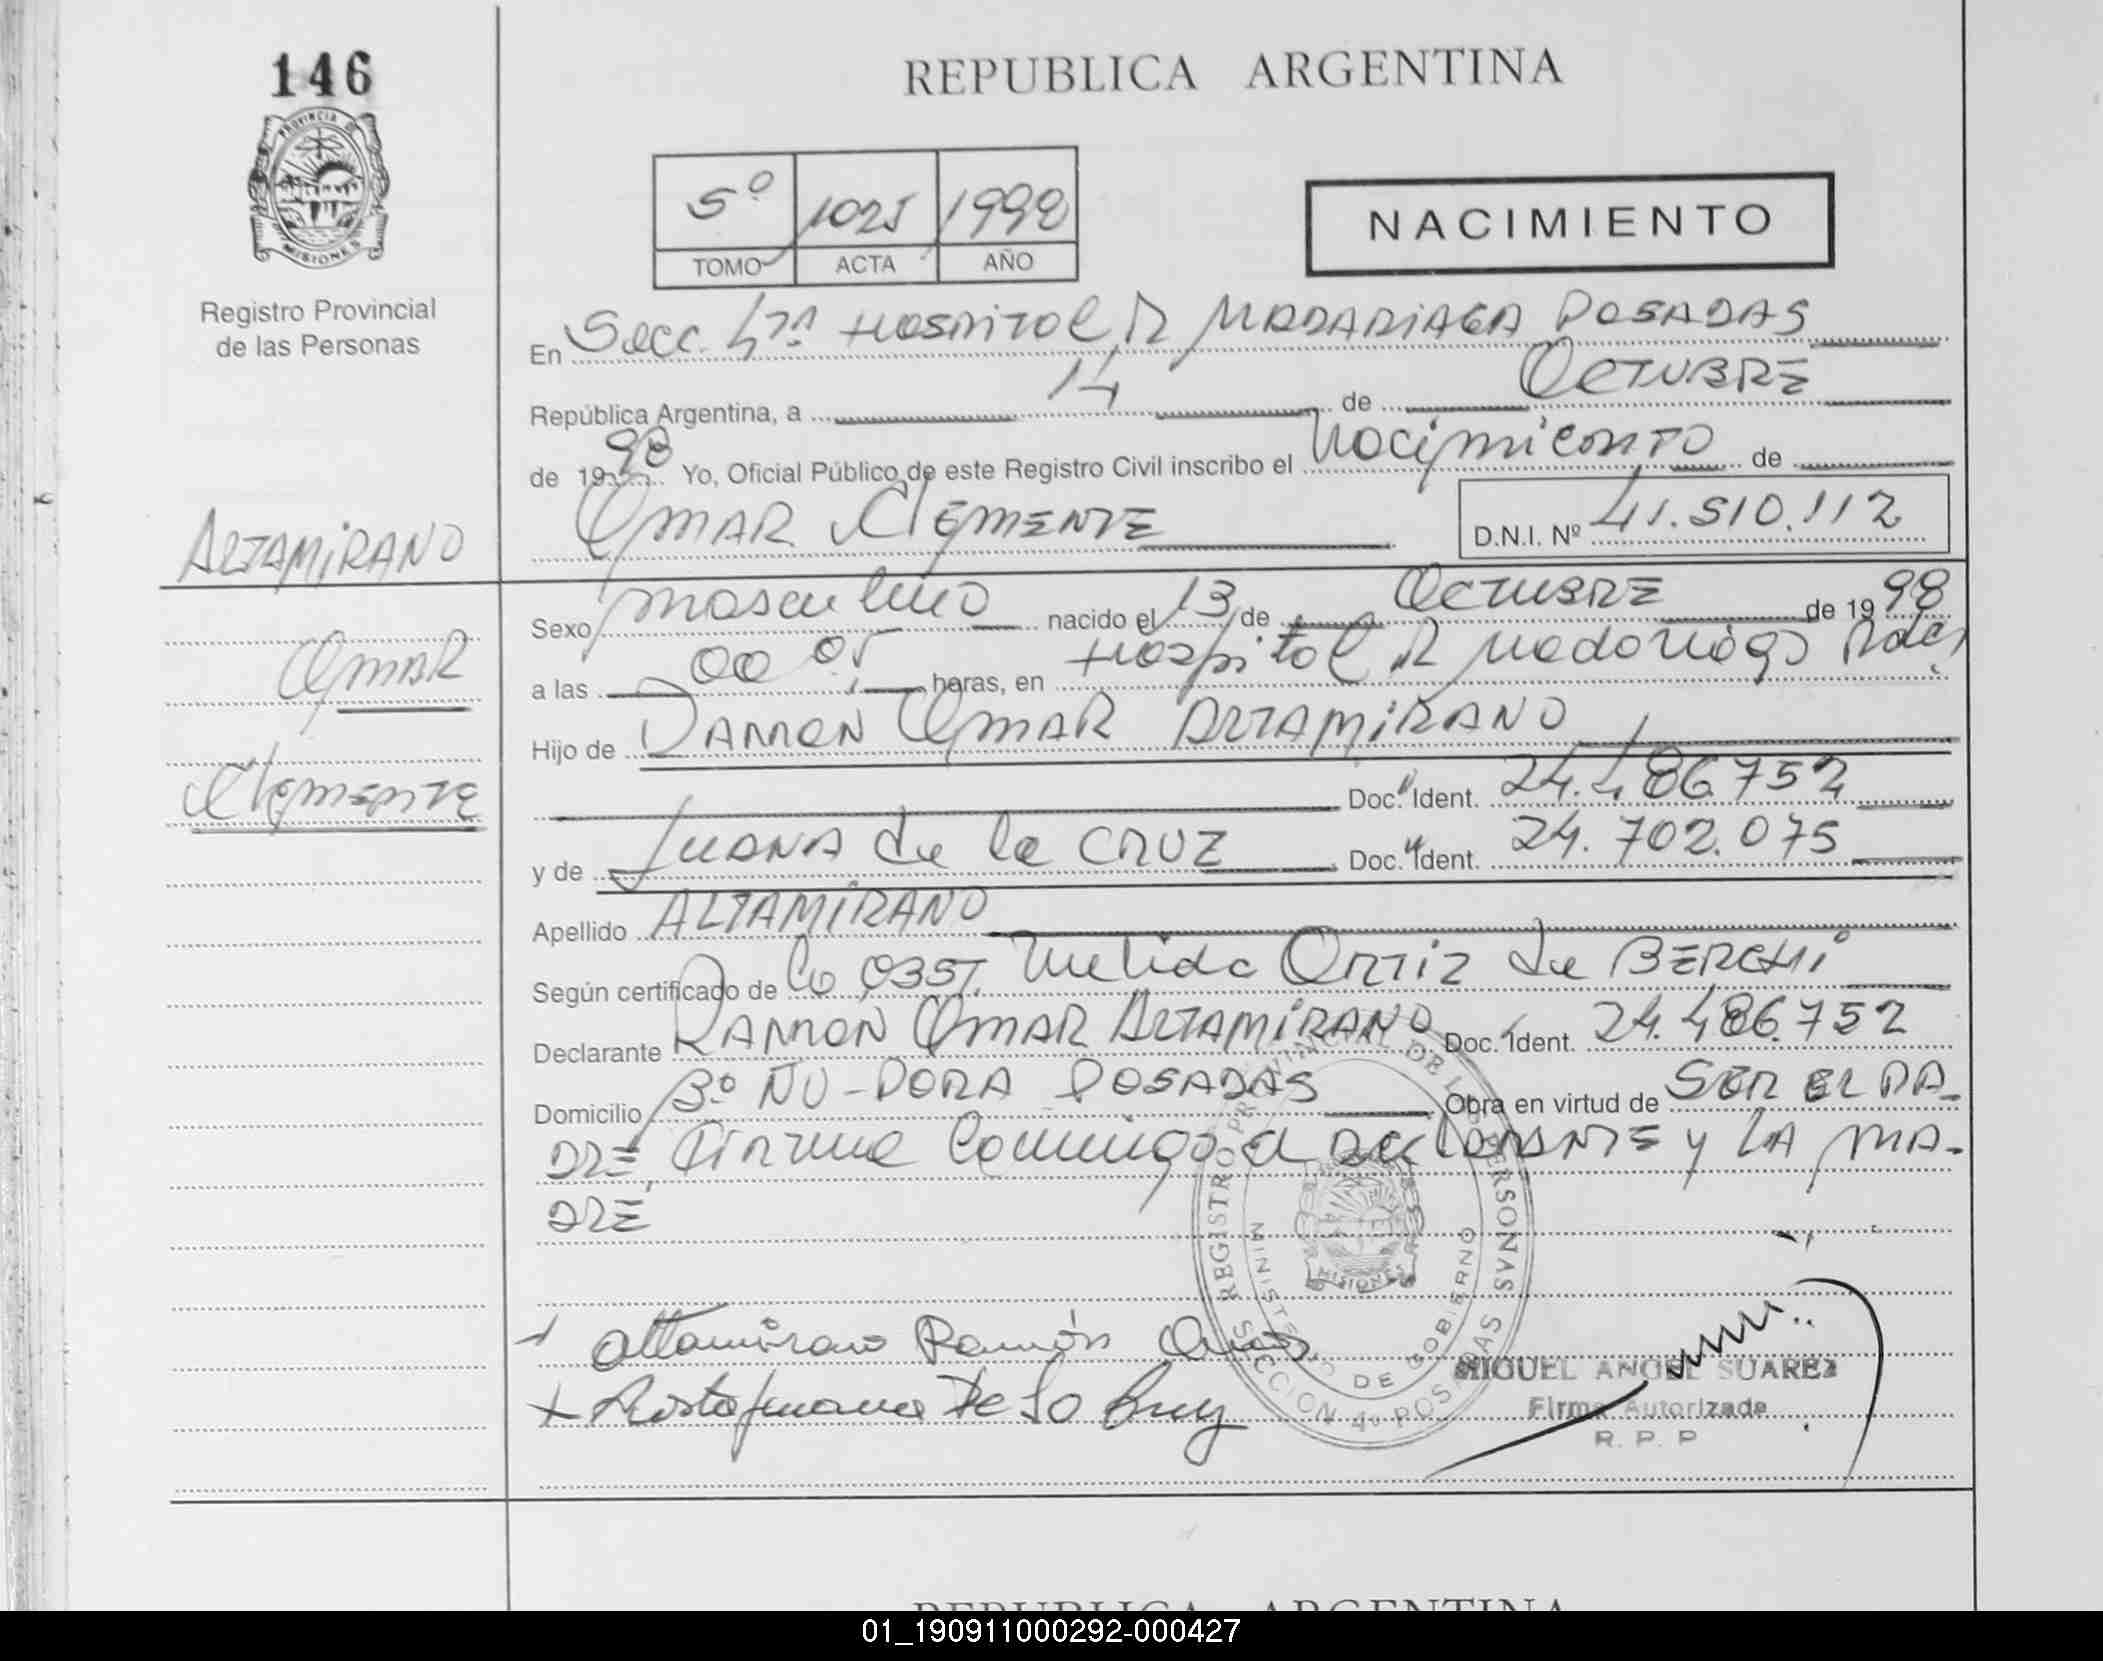 146
REPUBLICA ARGENTINA
PROVINCIA DE
MISIONES
5º 1025 1998
TOMO ACTA AÑO
NACIMIENTO
Registro Provincial
de las Personas
En Secc. 4ta Hospital R MADARIAGA POSADAS
República Argentina, a 14 de OCTUBRE
de 1998 Yo, Oficial Público de este Registro Civil inscribo el Nacimiento de
OMAR CLEMENTE D.N.I. Nº 41.510.112
ALTAMIRANO
OMAR
CLEMENTE
Sexo masculino nacido el 13 de OCTUBRE de 1998
a las 00 05 horas, en Hospital R Madariaga Pdas
Hijo de RAMON OMAR ALTAMIRANO
Doc. Ident. 24.486.752
y de JUANA de la CRUZ Doc. Ident. 24.702.075
Apellido ALTAMIRANO
Según certificado de la OBST. Nelida ORTIZ de BERCHI
Declarante RAMON OMAR ALTAMIRANO Doc. Ident. 24.486.752
Domicilio Bº ÑU-PORA POSADAS Obra en virtud de SER EL PA-
DRE, Firma Conmigo el declarante y LA MA-
DRE
REGISTRO PROVINCIAL DE LAS PERSONAS
MINISTERIO DE GOBIERNO
MISIONES
SECCION 4º POSADAS
Altamirano Ramón Omar
Juana De La Cruz
MIGUEL ANGEL SUAREZ
Firma Autorizada
R. P. P
REPUBLICA ARGENTINA
01_190911000292-000427